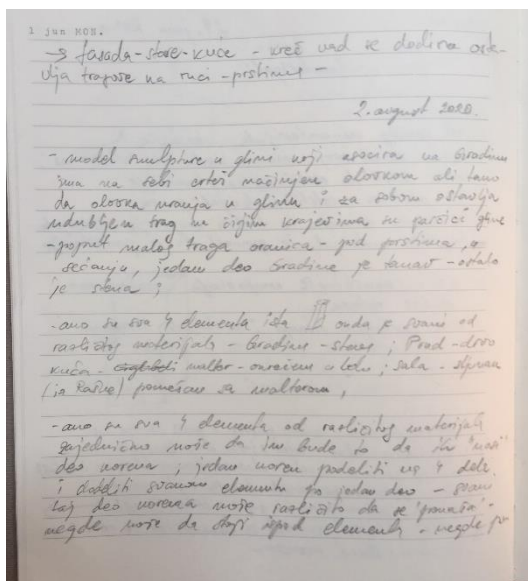 1 jun MON.
→ fasada - stare - kuće - kreč kad se dodirne osta-
vlja tragove na ruci - prstima -
2. avgust 2020.
- model skulpture u glini koji asocira na Gradinu
ima na sebi crtež načinjen olovkom ali tako
da olovka uranja u glinu i za sobom ostavlja
udubljen trag na čijim krajevima su parčići gline
- poput malog traga oranica - pod prstima, u
sećanju, jedan deo Gradine je travnat - ostalo
je stena;
- ako su sva 4 elementa ista onda je svaki od
različitog materijala - Gradina - stena; Prud - drvo
kuća - malter - u ; sala -
(iz Raške) pomešan sa malterom,
- ako su sva 4 elementa od različitog materijala
zajedničko može da im bude to da ih "nosi"
deo korena; jedan koren podeliti na 4 dela
i dodeliti svakom elementu po jedan deo - svaki
taj deo korena može različito da se "ponaša" -
negde može da stoji ispod elementa - negde